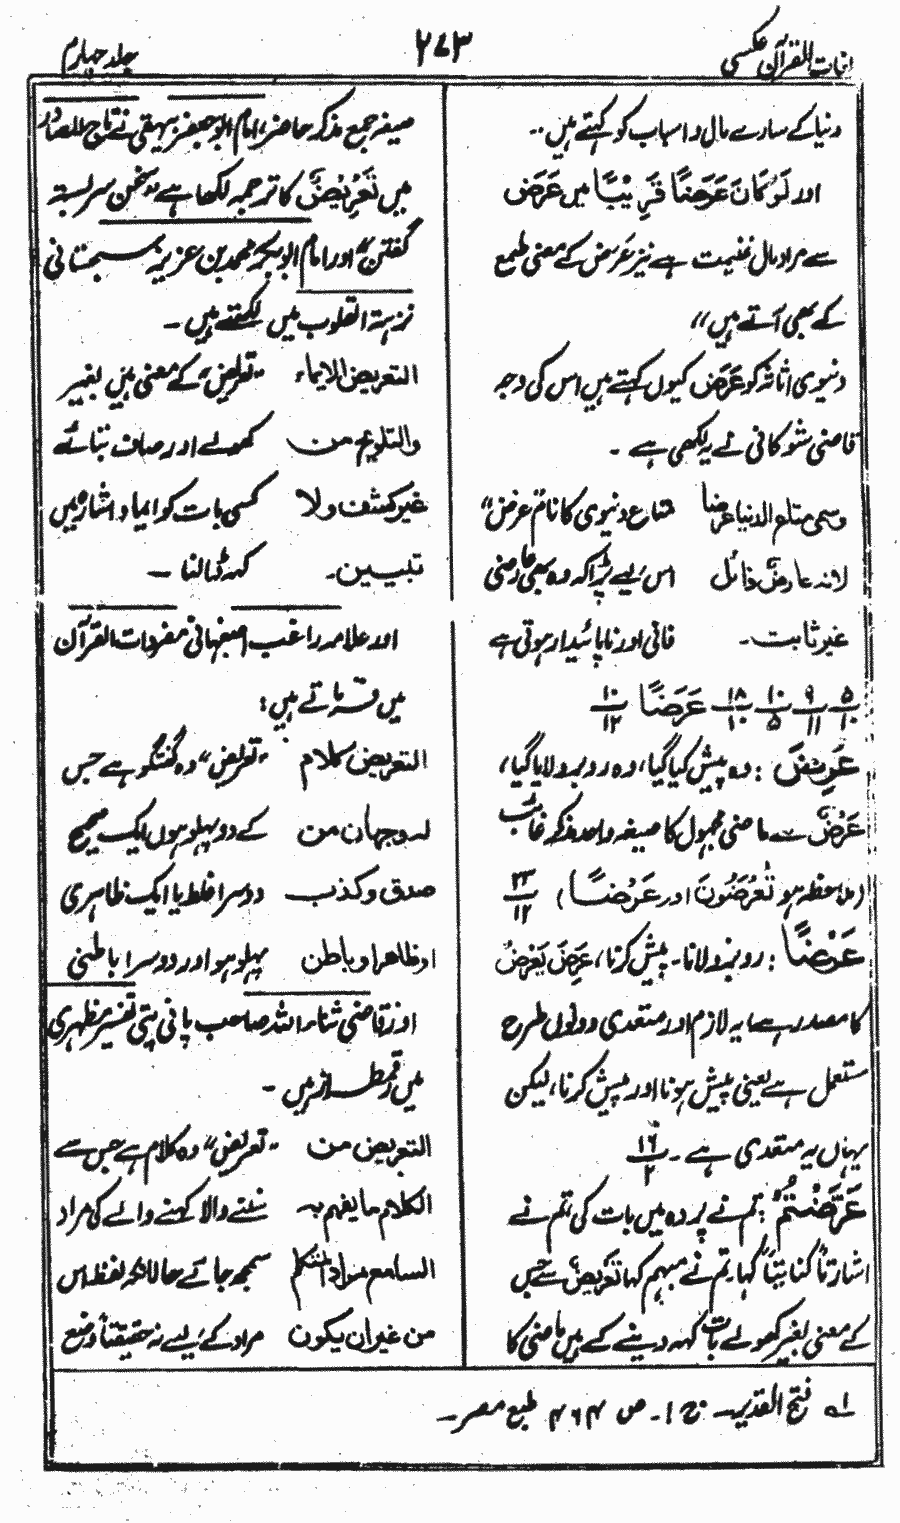 لغات القرآن عکسی
۲۷۳
جلد چہارم
دنیا کے سارے مال و اسباب کو کہتے ہیں ..
اور لَوْ كَانَ عَرَضًا قَرِيْبًا میں عَرَض
سے مراد مال غنیمت ہے نیز عَرَض کے معنی طمع
کے بھی آتے ہیں"
دنیوی اثاثہ کو عَرَض کیوں کہتے ہیں اس کی وجہ
قاضی شوکانی نے یہ لکھی ہے ۔
وسمی متاع الدنیا عرضا متاع دنیوی کا نام عرض"
لانہ عارض زائل اس لیے پڑا کہ وہ بھی عارضی
غیر ثابت۔ فانی اور ناپائیدار ہوتی ہے
۵/۱۰ ۹/۱۱ ۱۰/۵ ۱۸/۱۰ عَرَضًا ۱۰/۱۲
عَرَضَ : وہ پیش کیا گیا، وہ روبرو لایا گیا،
عَرْضٌ سے ماضی مجہول کا صیغہ واحد مذکر غائب
(ملاحظہ ہو تُعْرَضُونَ اور عَرْضًا) ۲۳/۱۲
عَرْضًا : روبرو لانا۔ پیش کرنا، عَرَضَ یَعْرِضُ
کا مصدر ہے، یہ لازم اور متعدی دونوں طرح
مستعمل ہے یعنی پیش ہونا اور پیش کرنا، لیکن
یہاں یہ متعدی ہے ۔ ۱۶/۲
عَرَّضْتُمْ : تم نے پردہ میں بات کی، تم نے
اشارتاً کنایتاً کہا، تم نے مبہم کہا تَعْرِیْضٌ سے جس
کے معنی بغیر کھولے بات کہہ دینے کے ہیں ماضی کا
صیغہ جمع مذکر حاضر، امام ابو جعفر بیہقی نے تاج المصادر
میں تَعْرِیْضٌ کا ترجمہ لکھا ہے "سخن سربستہ
گفتن" اور امام ابوبکر محمد بن عزیز سجستانی
نزہتہ القلوب میں لکھتے ہیں ۔
التعریض الایماء "تعریض" کے معنی ہیں بغیر
والتلویح من کھولے اور صاف بتائے
غیر کشف ولا کسی بات کو ایما و اشارہ میں
تبیین۔ کہہ ڈالنا ۔
اور علامہ راغب اصفہانی مفردات القرآن
میں فرماتے ہیں :
التعریض کلام "تعریض" وہ گفتگو ہے جس
لہ وجہان من کے دو پہلو ہوں ایک صحیح
صدق وکذب دوسرا غلط یا ایک ظاہری
او ظاهر وباطن پہلو ہو اور دوسرا باطنی
اور قاضی ثناء اللہ صاحب پانی پتی تفسیر مظہری
میں رقمطراز ہیں ۔
التعریض من "تعریض" وہ کلام ہے جس سے
الکلام ما یفہم بہ سننے والا کہنے والے کی مراد
السامع مراد المتکلم سمجھ جائے حالانکہ لفظ اس
من غیر ان یکون مراد کے لیے نہ حقیقتاً وضع
لہ فتح القدیر۔ ج ۱۔ ص ۴۶۴ طبع مصر۔